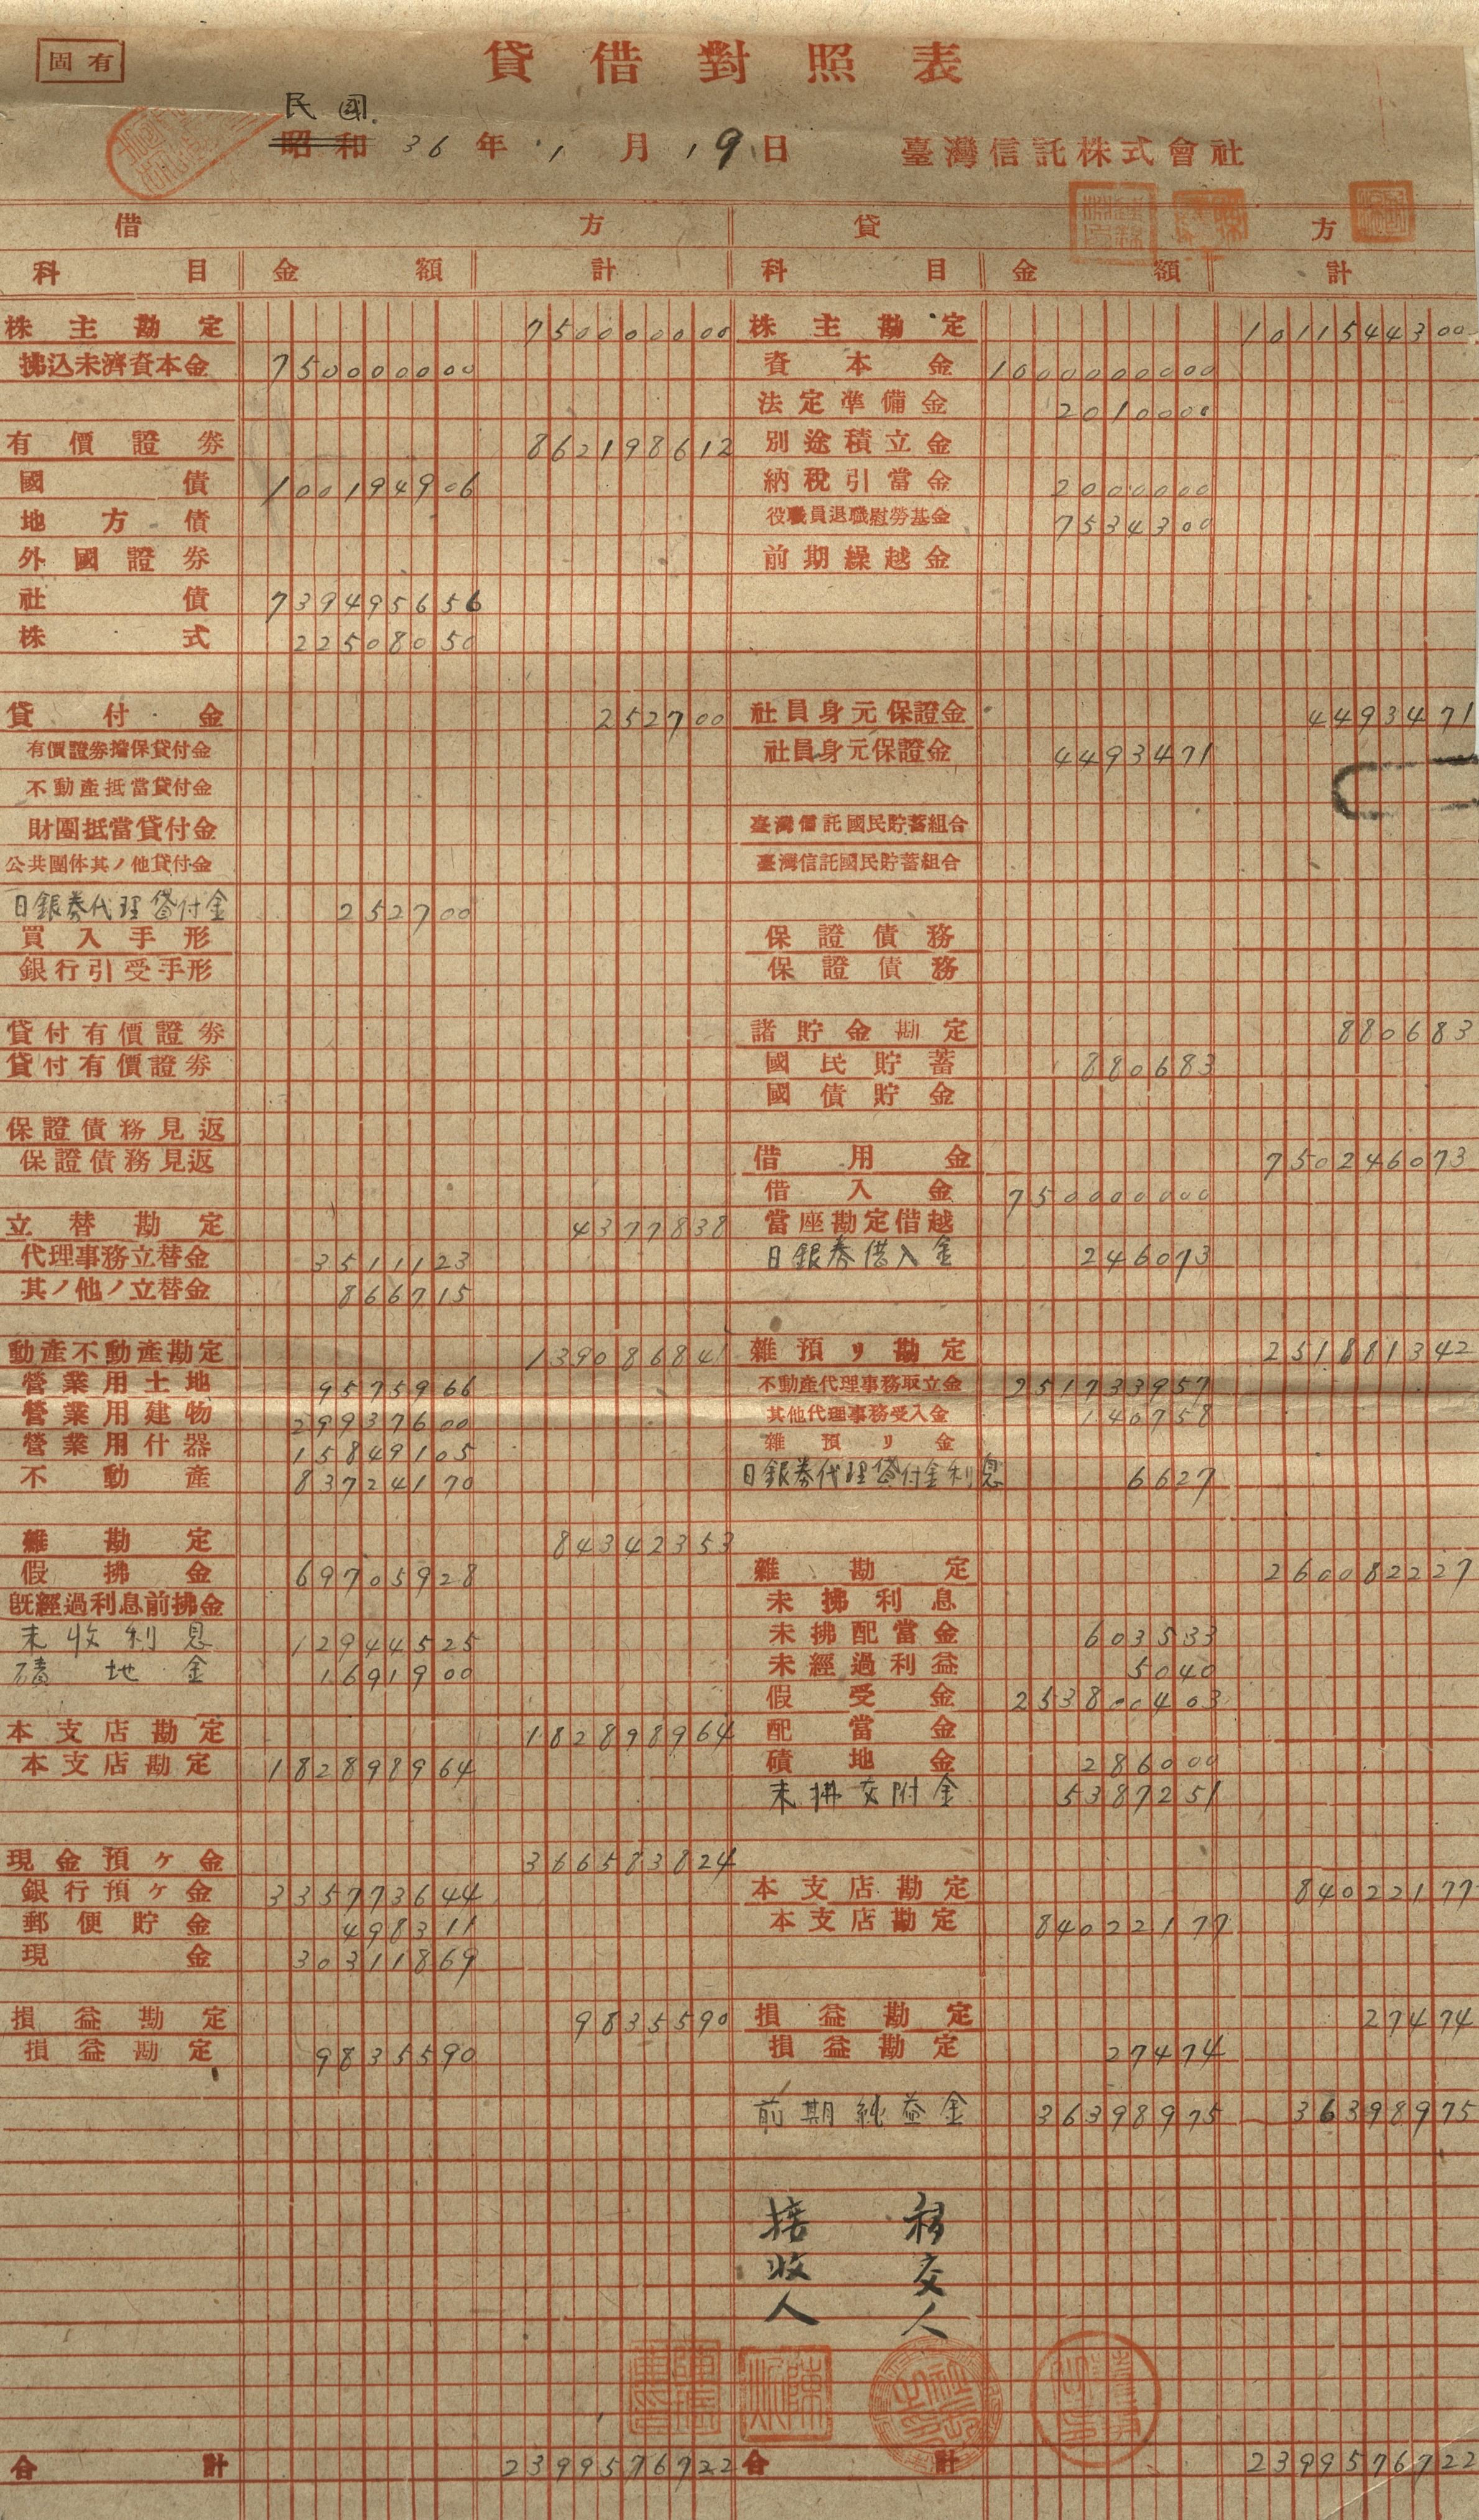 固有
貸借對照表
民國
昭和 36年 1月 19日 臺灣信託株式會社
借方
科目 金額 計
株主勘定 750000000
拂込未濟資本金 750000000
有價證券 862198612
國債 100194906
地方債
外國證券
社債 739495656
株式 22508050
貸付金 252700
有價證券擔保貸付金
不動產抵當貸付金
財團抵當貸付金
公共團体其ノ他貸付金
日銀券代理貸付金 252700
買入手形
銀行引受手形
貸付有價證券
貸付有價證券
保證債務見返
保證債務見返
立替勘定 4377838
代理事務立替金 3511123
其ノ他ノ立替金 866715
動產不動產勘定 139086841
營業用土地 9575966
營業用建物 29937600
營業用什器 15849105
不動產 83724170
雜勘定 84342353
假拂金 69705928
旣經過利息前拂金
未收利息 12944525
磧地金 1691900
本支店勘定 182898964
本支店勘定 182898964
現金預ケ金 366583824
銀行預ケ金 335773644
郵便貯金 498311
現金 30311869
損益勘定 9835590
損益勘定 9835590
合計 2399576722
貸方
科目 金額 計
株主勘定 1011544300
資本金 1000000000
法定準備金 2010000
別途積立金
納稅引當金 2000000
役職員退職慰勞基金 7534300
前期繰越金
社員身元保證金 4493471
社員身元保證金 4493471
臺灣信託國民貯蓄組合
臺灣信託國民貯蓄組合
保證債務
保證債務
諸貯金勘定 880683
國民貯蓄 880683
國債貯金
借用金 750246073
借入金 750000000
當座勘定借越
日銀券借入金 246073
雜預リ勘定 251881342
不動產代理事務取立金 251733957
其他代理事務受入金 140758
雜預リ金
日銀券代理貸付金利息 6627
雜勘定 260082227
未拂利息
未拂配當金 603533
未經過利益 5040
假受金 253800403
配當金
磧地金 286000
未拂交附金 5387251
本支店勘定 84022177
本支店勘定 84022177
損益勘定 27474
損益勘定 27474
前期純益金 36398975 36398975
移交人
接收人
合計 2399576722